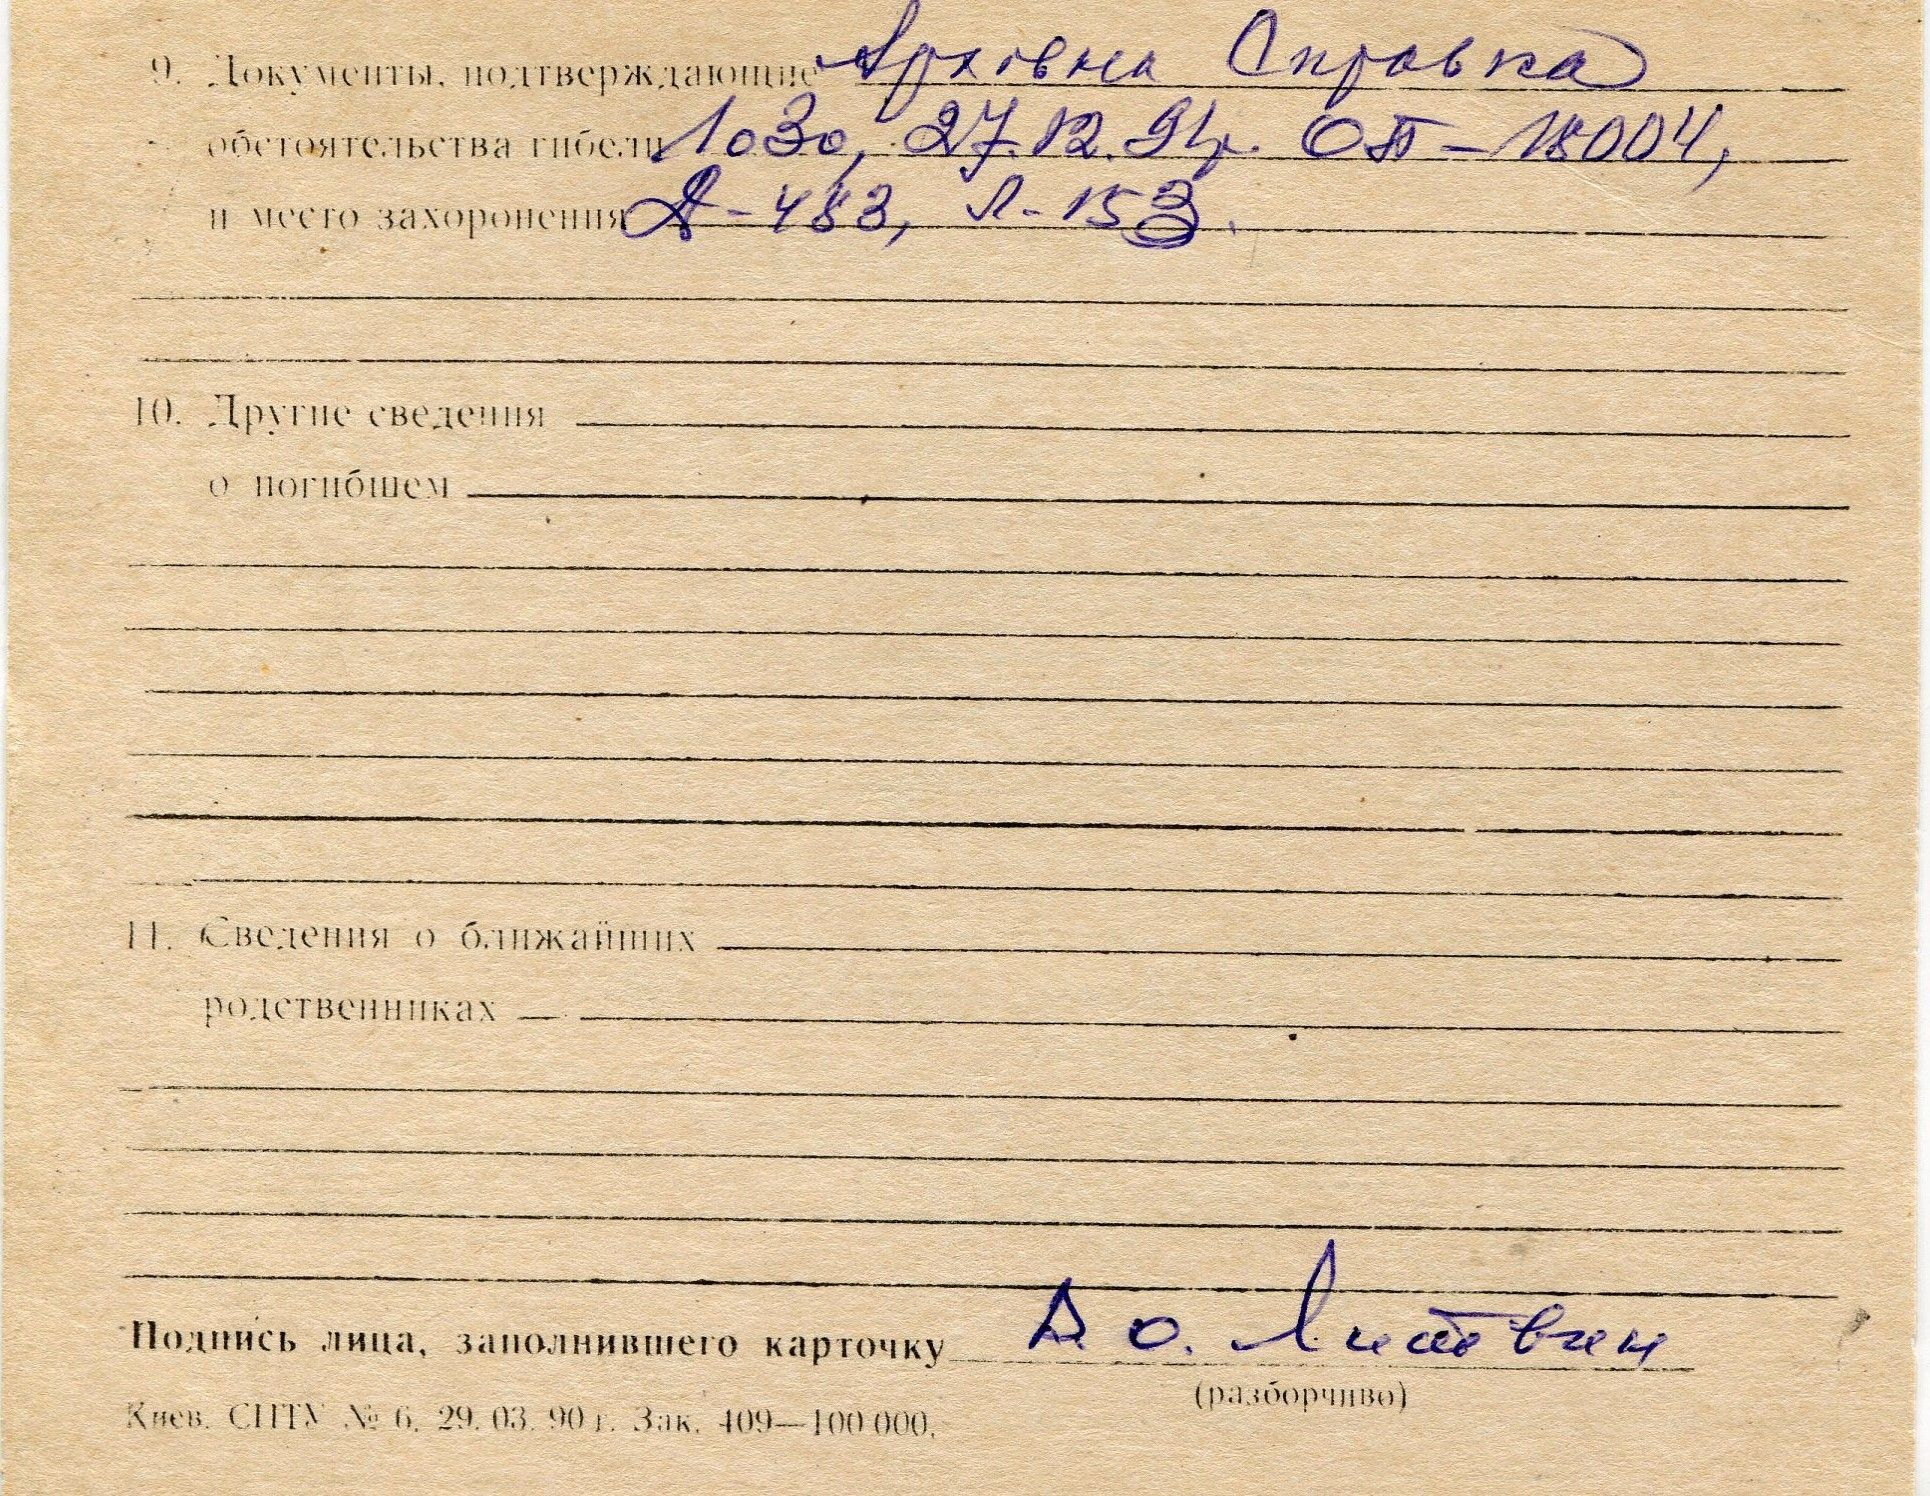 9. Документы, подтверждающие Архівна Справка
обстоятельства гибели 1030, 27.12.91р. ОП-18004,
и место захоронения А-483, Л-153.
10. Другие сведения
о погибшем
11. Сведения о ближайших
родственниках
Подпись лица, заполнившего карточку О. Литвин
(разборчиво)
Киев. СПТУ № 6. 29. 03. 90 г. Зак. 409—100 000.